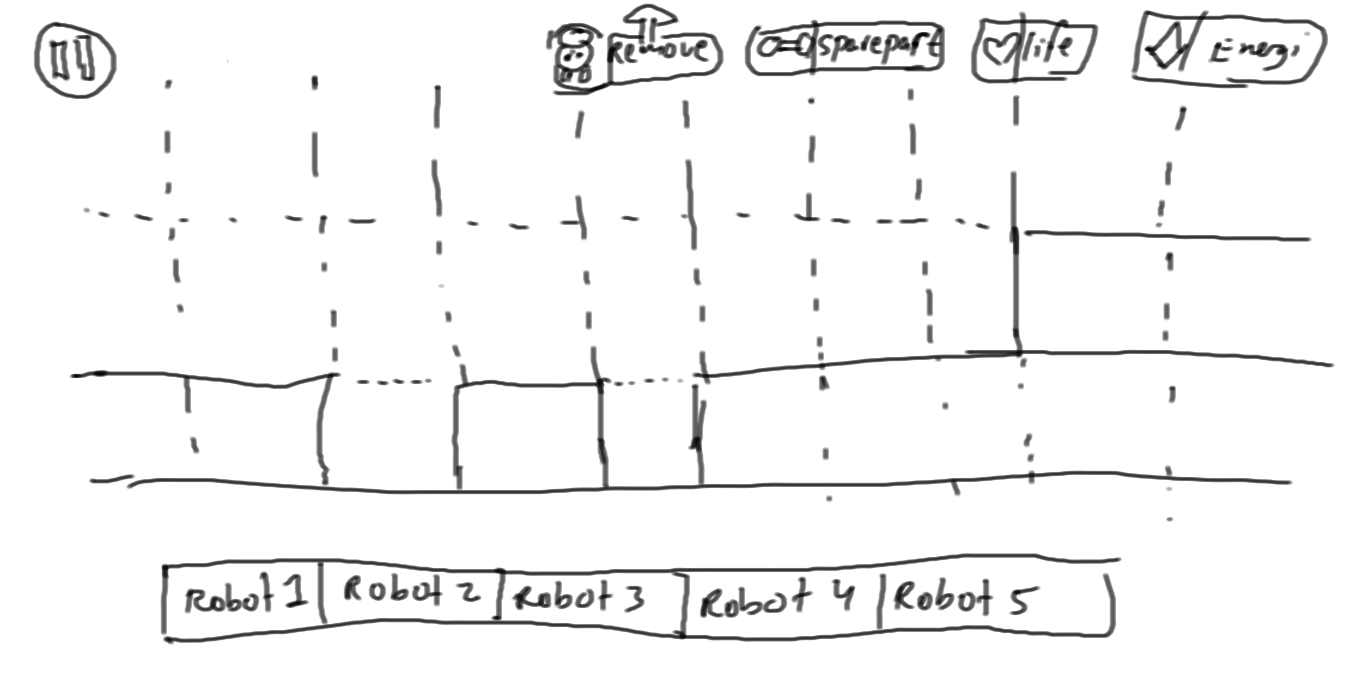 Remove sparepart life Energi
Robot 1 Robot 2 Robot 3 Robot 4 Robot 5